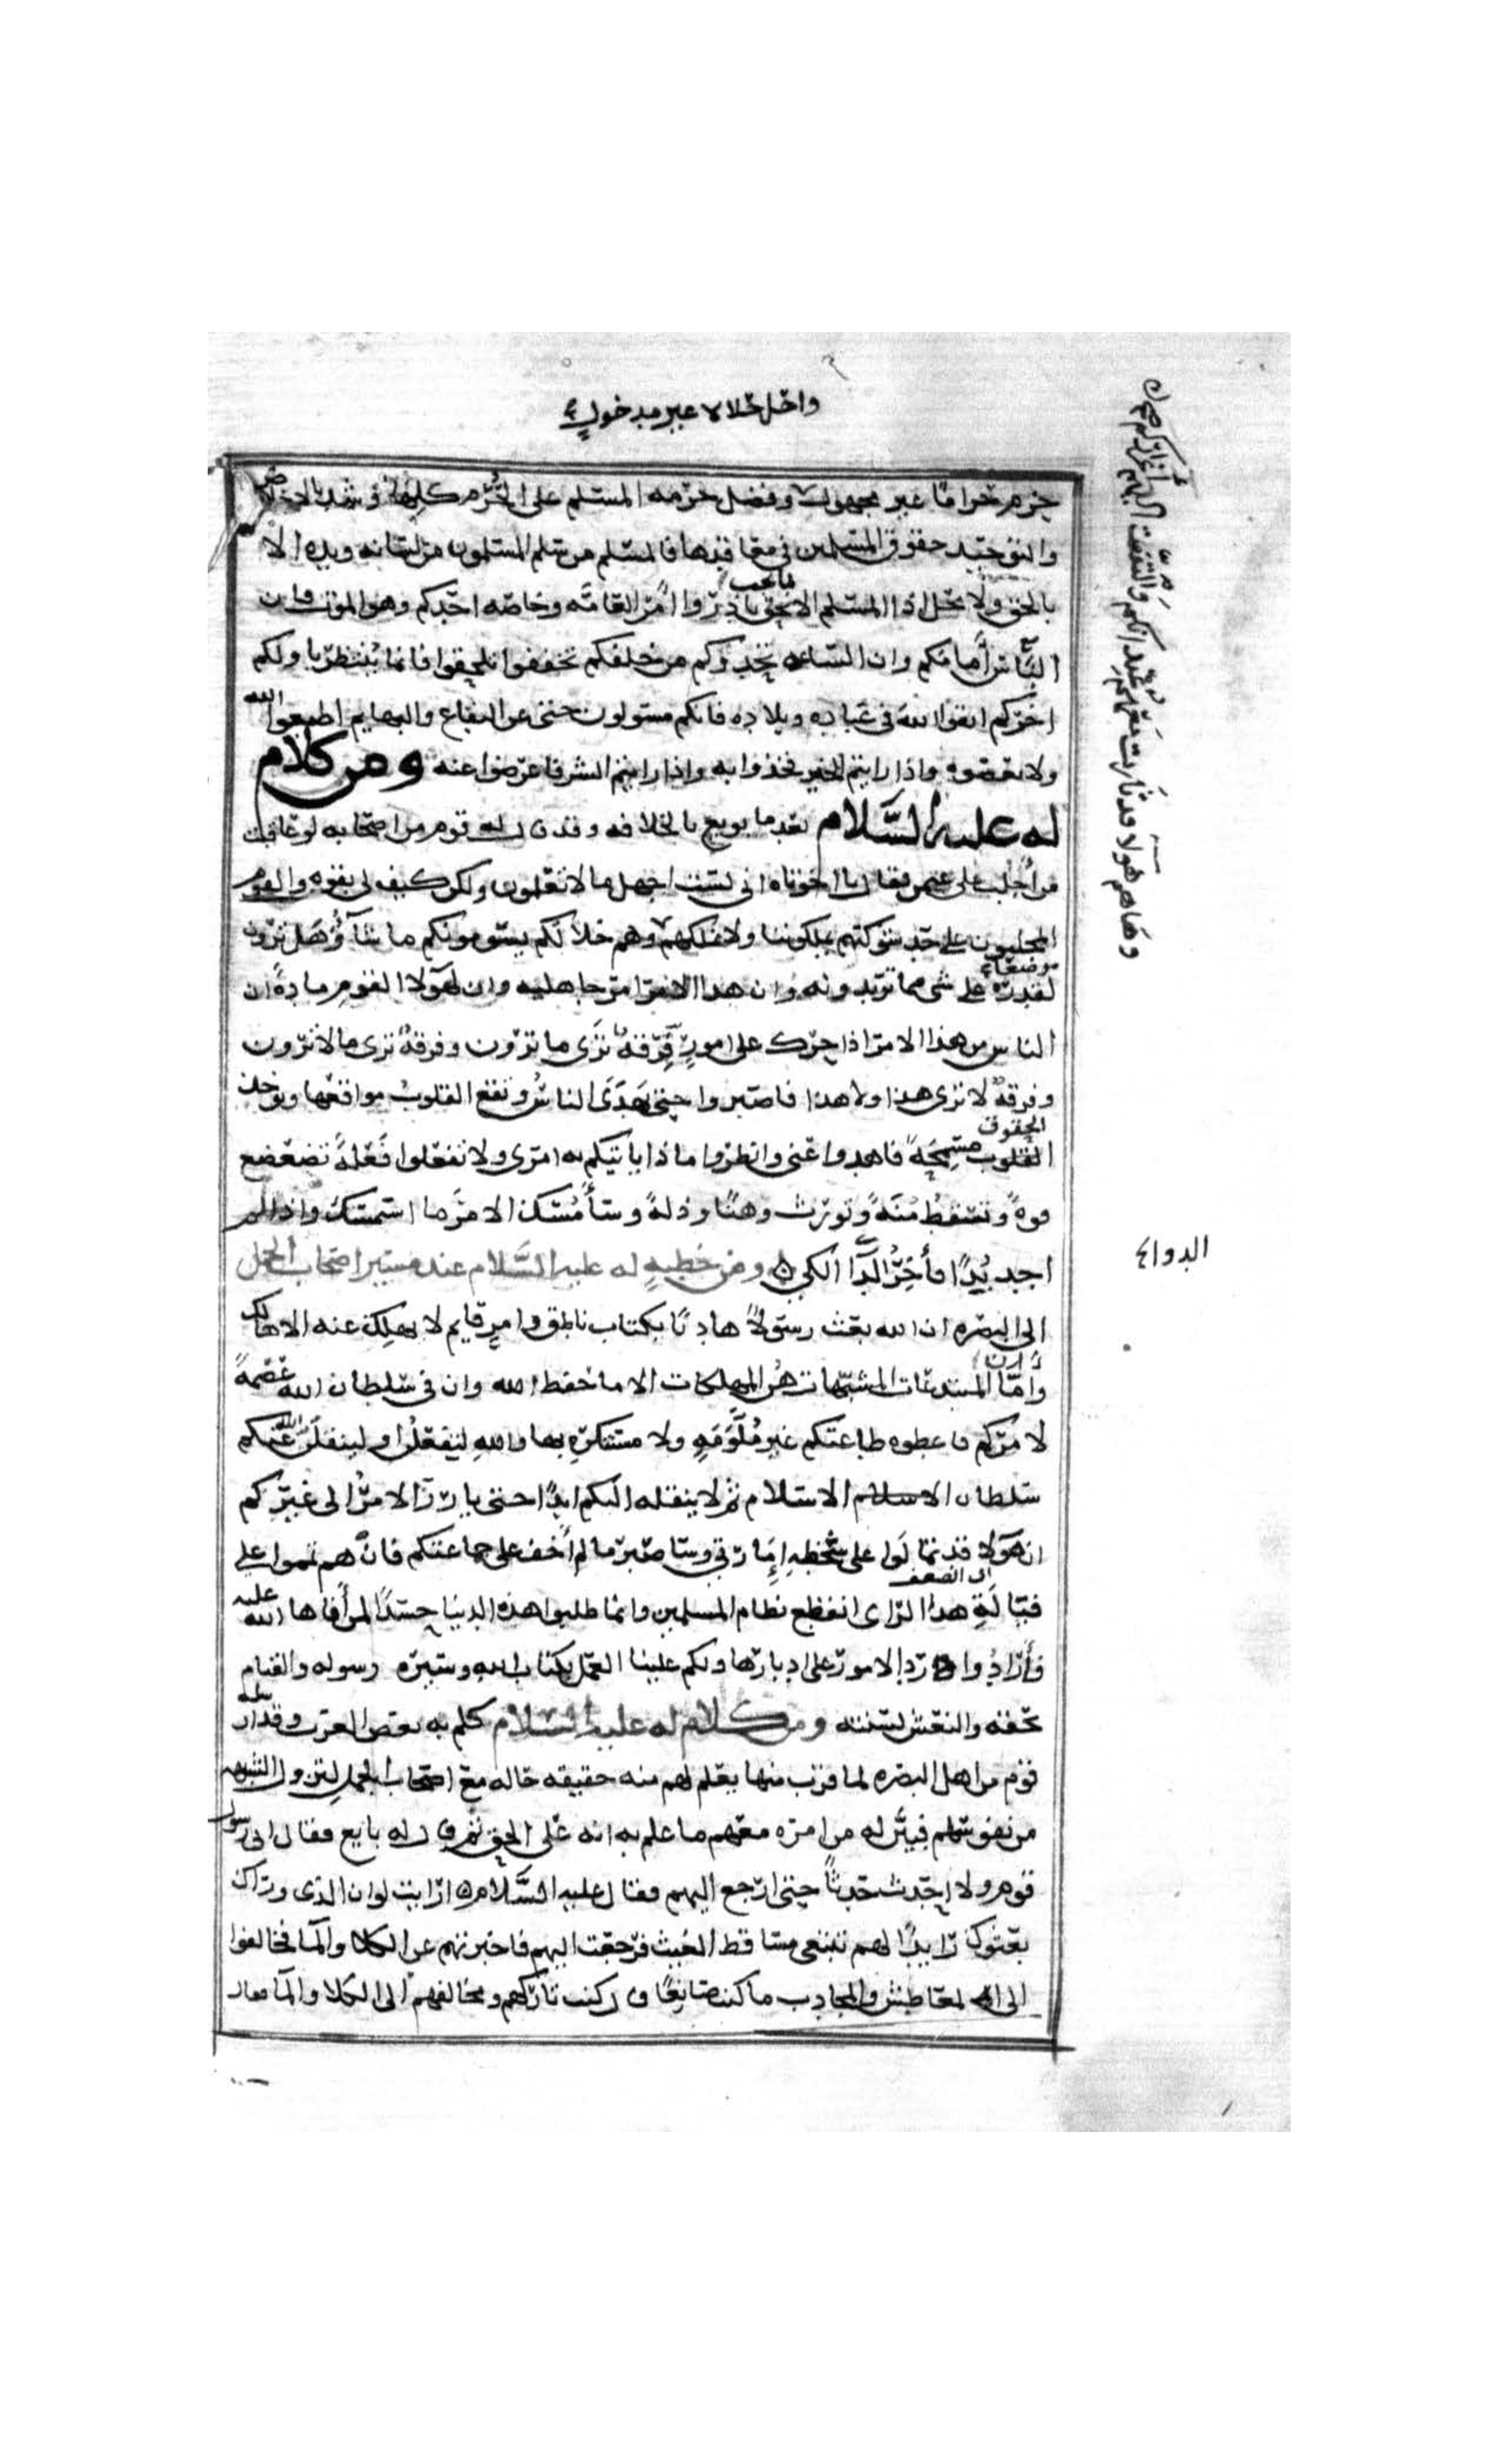 واحل حلالا غير مدخول
حرم حراما غير مجهول وفضل حرمة المسلم على الحُرَم كلها وشد بالاخلاص
والتوحيد حقوق المسلمين في معاقدها فالمسلم من سلم المسلمون من لسانه ويده الا
بالحق ولا يحل اذا المسلم الا بما يجب بادروا امر العامة وخاصة احدكم وهو الموت فان
الناس امامكم وان الساعة تحدوكم من خلفكم تخففوا تلحقوا فانما ينتظر باولكم
اخركم اتقوا الله في عباده وبلاده فانكم مسئولون حتى عن البقاع والبهايم اطيعوا الله
ولا تعصوه واذا رايتم الخير فخذوا به واذا رايتم الشر فاعرضوا عنه ومن كلام
له عليه السَّلام بعد ما بويع بالخلافة وقد قال له قوم من اصحابه لو عاقبت
من اجلب على عثمن فقال يا اخوتاه انى لست اجهل ما لا تعلمون ولكن كيف لى بقوه والقوم
المجلبون على حد شوكتهم يملكوننا ولا نملكهم
وهَاهم هولا قد ثارت معهم عُبدانكم والتفّت اليهم اعرابكم
وهم خلالكم يسومونكم ما شآؤُ وهل ترون
موضعا
لقدرة على شي مما تريدونه وان هدا الامر امر جاهليه وان لهولا القوم مادةً ان
الناس من هذا الامر اذا حرك على امورٍ فِرقةٌ تَرَى ما ترون وفرقةٌ ترى ما لا ترون
وفرقةٌ لا ترى هذا ولا هذا فاصبروا حتى يهدَى الناسُ وتقع القلوبُ مواقعها وتوخذ
الحقوق
القلوب مسمحَةً فاهدوا عنى وانظروا ماذا ياتيكم به امرى ولا تفعلوا فَعْلةً تضعضع
قوةً وتسقطُ مُنَّةً وتورث وهنًا وذلةً وسأُمسك الامرَ ما استمسك واذا لم
اجد بُدًا فأخِرُ الدَّا الكي ومن خطبةٍ له عليه السَّلام عند مسير اصحاب الجمل
الدواء
الى البصره ان الله بعث رسولاً هاديًا بكتاب ناطق وامرٍ قايم لا يهلك عنه الا هالك
وان
وامّا المبتدعات المشبَّهات هُن المهلكات الا ما حفظ الله وان فى سلطان الله عصمةً
لامركم فاعطوه طاعتكم غير مُلَوَّمَةٍ ولا مستكرَهٍ بها واللهِ ليفعلُن او لينقلَنّ الله عنكم
سلطان الاسلام الاسلام ثم لا ينقله اليكم ابدًا حتى يارز الامرُ الى غيركم
ان هولا قد تمالَوا على سخطه إمارتي وساصبر ما لم أخف على جماعتكم فانّهم ان تموا على
اى الضعف
فيَالَةِ هذا الراى انقطع نظام المسلمين وانما طلبوا هذه الدنيا حسَدًا لمن أفاها الله عليه
فأرادُوا رد الامور على ادبارها ولكم علينا العمل بكتاب الله وسيره رسوله والقيام
بحقه والنعش لسنته ومن كلام له عليه السَّلام كلم به بعض العرب وقد ارسله
قوم من اهل البصره لما قرب منها يعلم لهم منه حقيقه حاله مع اصحاب الجمل لتزول الشبهه
من نفوسهم فبيّن له من امره معهم ما علم به انه على الحق ثم قال له بايع فقال انى رسول
قوم ولا احدث حَدثًا حتى ارجع اليهم فقال عليه السَّلام ارايت لوان الذى وراك
بعثوك رايدًا لهم تبتغى مساقط الغيث فرجعت اليهم فاخبرتهم عن الكلا والمآ فخالفوا
الى المعاطش والمجادب ما كنت صانعًا قال كنت تاركهم ومخالفهم الى الكلا والمآ فقال